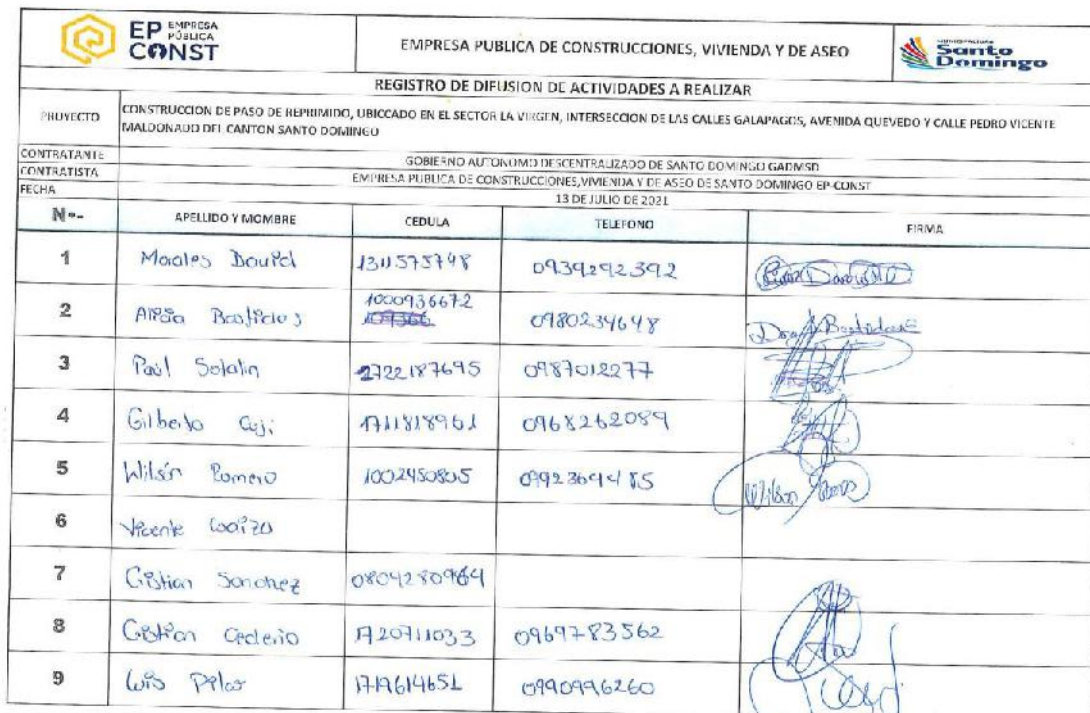 EP EMPRESA PÚBLICA CONST
EMPRESA PUBLICA DE CONSTRUCCIONES, VIVIENDA Y DE ASEO
Santo Domingo
REGISTRO DE DIFUSION DE ACTIVIDADES A REALIZAR
PROYECTO
CONSTRUCCION DE PASO DE REPRIMIDO, UBICCADO EN EL SECTOR LA VIRGEN, INTERSECCION DE LAS CALLES GALAPAGOS, AVENIDA QUEVEDO Y CALLE PEDRO VICENTE
MALDONADO DEL CANTON SANTO DOMINGO
CONTRATANTE GOBIERNO AUTONOMO DESCENTRALIZADO DE SANTO DOMINGO GADMSD
CONTRATISTA EMPRESA PUBLICA DE CONSTRUCCIONES,VIVIENDA Y DE ASEO DE SANTO DOMINGO EP-CONST
FECHA 13 DE JULIO DE 2021
N°- APELLIDO Y MOMBRE CEDULA TELEFONO FIRMA
1 Morales David 1311575748 0939292392
2 1000936672 0980234648
3 Paul 1722187695 0987012277
4 Gilberto Caji 1711818961 0968262089
5 Wilson Romero 1002450805 Wilson
6 Vicente
7 Cristian Sanchez
8 Cristian Cedeño 1720711033 0969783562
9 Luis 1719614651 0990996260